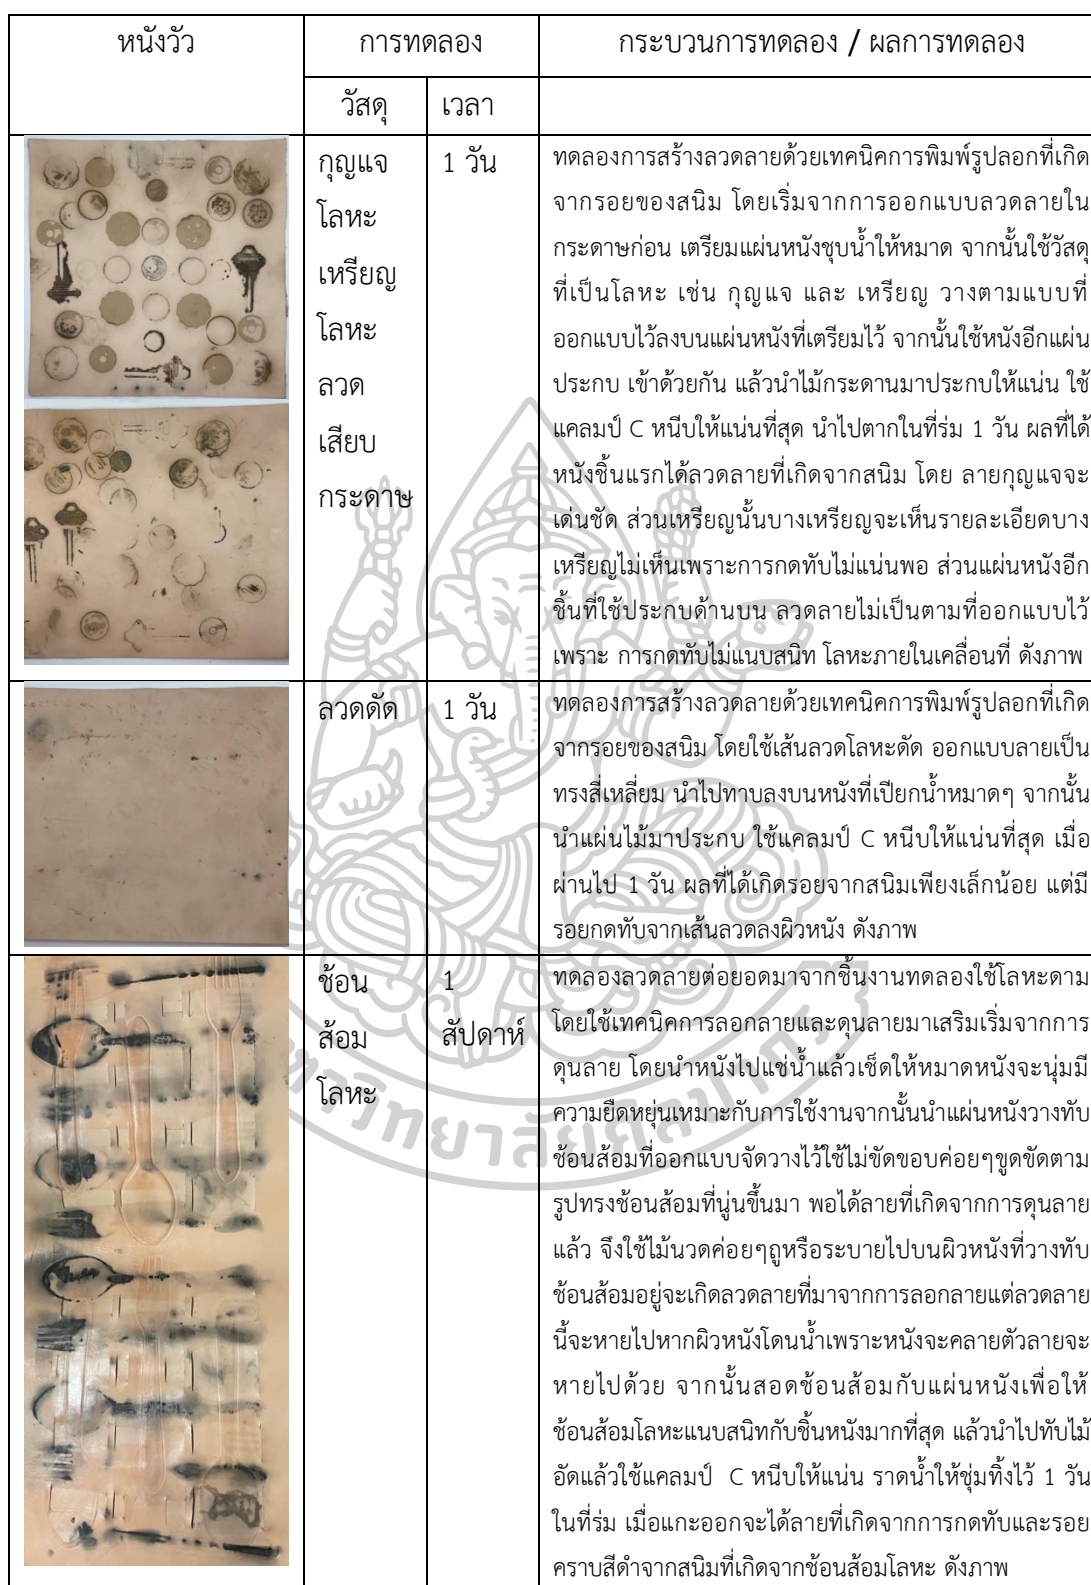 หนังวัว
การทดลอง
กระบวนการทดลอง / ผลการทดลอง
วัสดุ
เวลา
กุญแจ
โลหะ
เหรียญ
โลหะ
ลวด
เสียบ
กระดาษ
1 วัน
ทดลองการสร้างลวดลายด้วยเทคนิคการพิมพ์รูปลอกที่เกิด
จากรอยของสนิม โดยเริ่มจากการออกแบบลวดลายใน
กระดาษก่อน เตรียมแผ่นหนังชุบน้ำให้หมาด จากนั้นใช้วัสดุ
ที่เป็นโลหะ เช่น กุญแจ และ เหรียญ วางตามแบบที่
ออกแบบไว้ลงบนแผ่นหนังที่เตรียมไว้ จากนั้นใช้หนังอีกแผ่น
ประกบ เข้าด้วยกัน แล้วนำไม้กระดานมาประกบให้แน่น ใช้
แคลมป์ C หนีบให้แน่นที่สุด นำไปตากในที่ร่ม 1 วัน ผลที่ได้
หนังชิ้นแรกได้ลวดลายที่เกิดจากสนิม โดย ลายกุญแจจะ
เด่นชัด ส่วนเหรียญนั้นบางเหรียญจะเห็นรายละเอียดบาง
เหรียญไม่เห็นเพราะการกดทับไม่แน่นพอ ส่วนแผ่นหนังอีก
ชิ้นที่ใช้ประกบด้านบน ลวดลายไม่เป็นตามที่ออกแบบไว้
เพราะ การกดทับไม่แนบสนิท โลหะภายในเคลื่อนที่ ดังภาพ
ลวดดัด
1 วัน
ทดลองการสร้างลวดลายด้วยเทคนิคการพิมพ์รูปลอกที่เกิด
จากรอยของสนิม โดยใช้เส้นลวดโลหะดัด ออกแบบลายเป็น
ทรงสี่เหลี่ยม นำไปทาบลงบนหนังที่เปียกน้ำหมาดๆ จากนั้น
นำแผ่นไม้มาประกบ ใช้แคลมป์ C หนีบให้แน่นที่สุด เมื่อ
ผ่านไป 1 วัน ผลที่ได้เกิดรอยจากสนิมเพียงเล็กน้อย แต่มี
รอยกดทับจากเส้นลวดลงผิวหนัง ดังภาพ
ช้อน
ส้อม
โลหะ
1
สัปดาห์
ทดลองลวดลายต่อยอดมาจากชิ้นงานทดลองใช้โลหะดาม
โดยใช้เทคนิคการลอกลายและดุนลายมาเสริมเริ่มจากการ
ดุนลาย โดยนำหนังไปแช่น้ำแล้วเช็ดให้หมาดหนังจะนุ่มมี
ความยืดหยุ่นเหมาะกับการใช้งานจากนั้นนำแผ่นหนังวางทับ
ช้อนส้อมที่ออกแบบจัดวางไว้ใช้ไม้ขัดขอบค่อยๆขูดขัดตาม
รูปทรงช้อนส้อมที่นูนขึ้นมา พอได้ลายที่เกิดจากการดุนลาย
แล้ว จึงใช้ไม้นวดค่อยๆถูหรือระบายไปบนผิวหนังที่วางทับ
ช้อนส้อมอยู่จะเกิดลวดลายที่มาจากการลอกลายแต่ลวดลาย
นี้จะหายไปหากผิวหนังโดนน้ำเพราะหนังจะคลายตัวลายจะ
หายไปด้วย จากนั้นสอดช้อนส้อมกับแผ่นหนังเพื่อให้
ช้อนส้อมโลหะแนบสนิทกับชิ้นหนังมากที่สุด แล้วนำไปทับไม้
อัดแล้วใช้แคลมป์ C หนีบให้แน่น ราดน้ำให้ชุ่มทิ้งไว้ 1 วัน
ในที่ร่ม เมื่อแกะออกจะได้ลายที่เกิดจากการกดทับและรอย
คราบสีดำจากสนิมที่เกิดจากช้อนส้อมโลหะ ดังภาพ